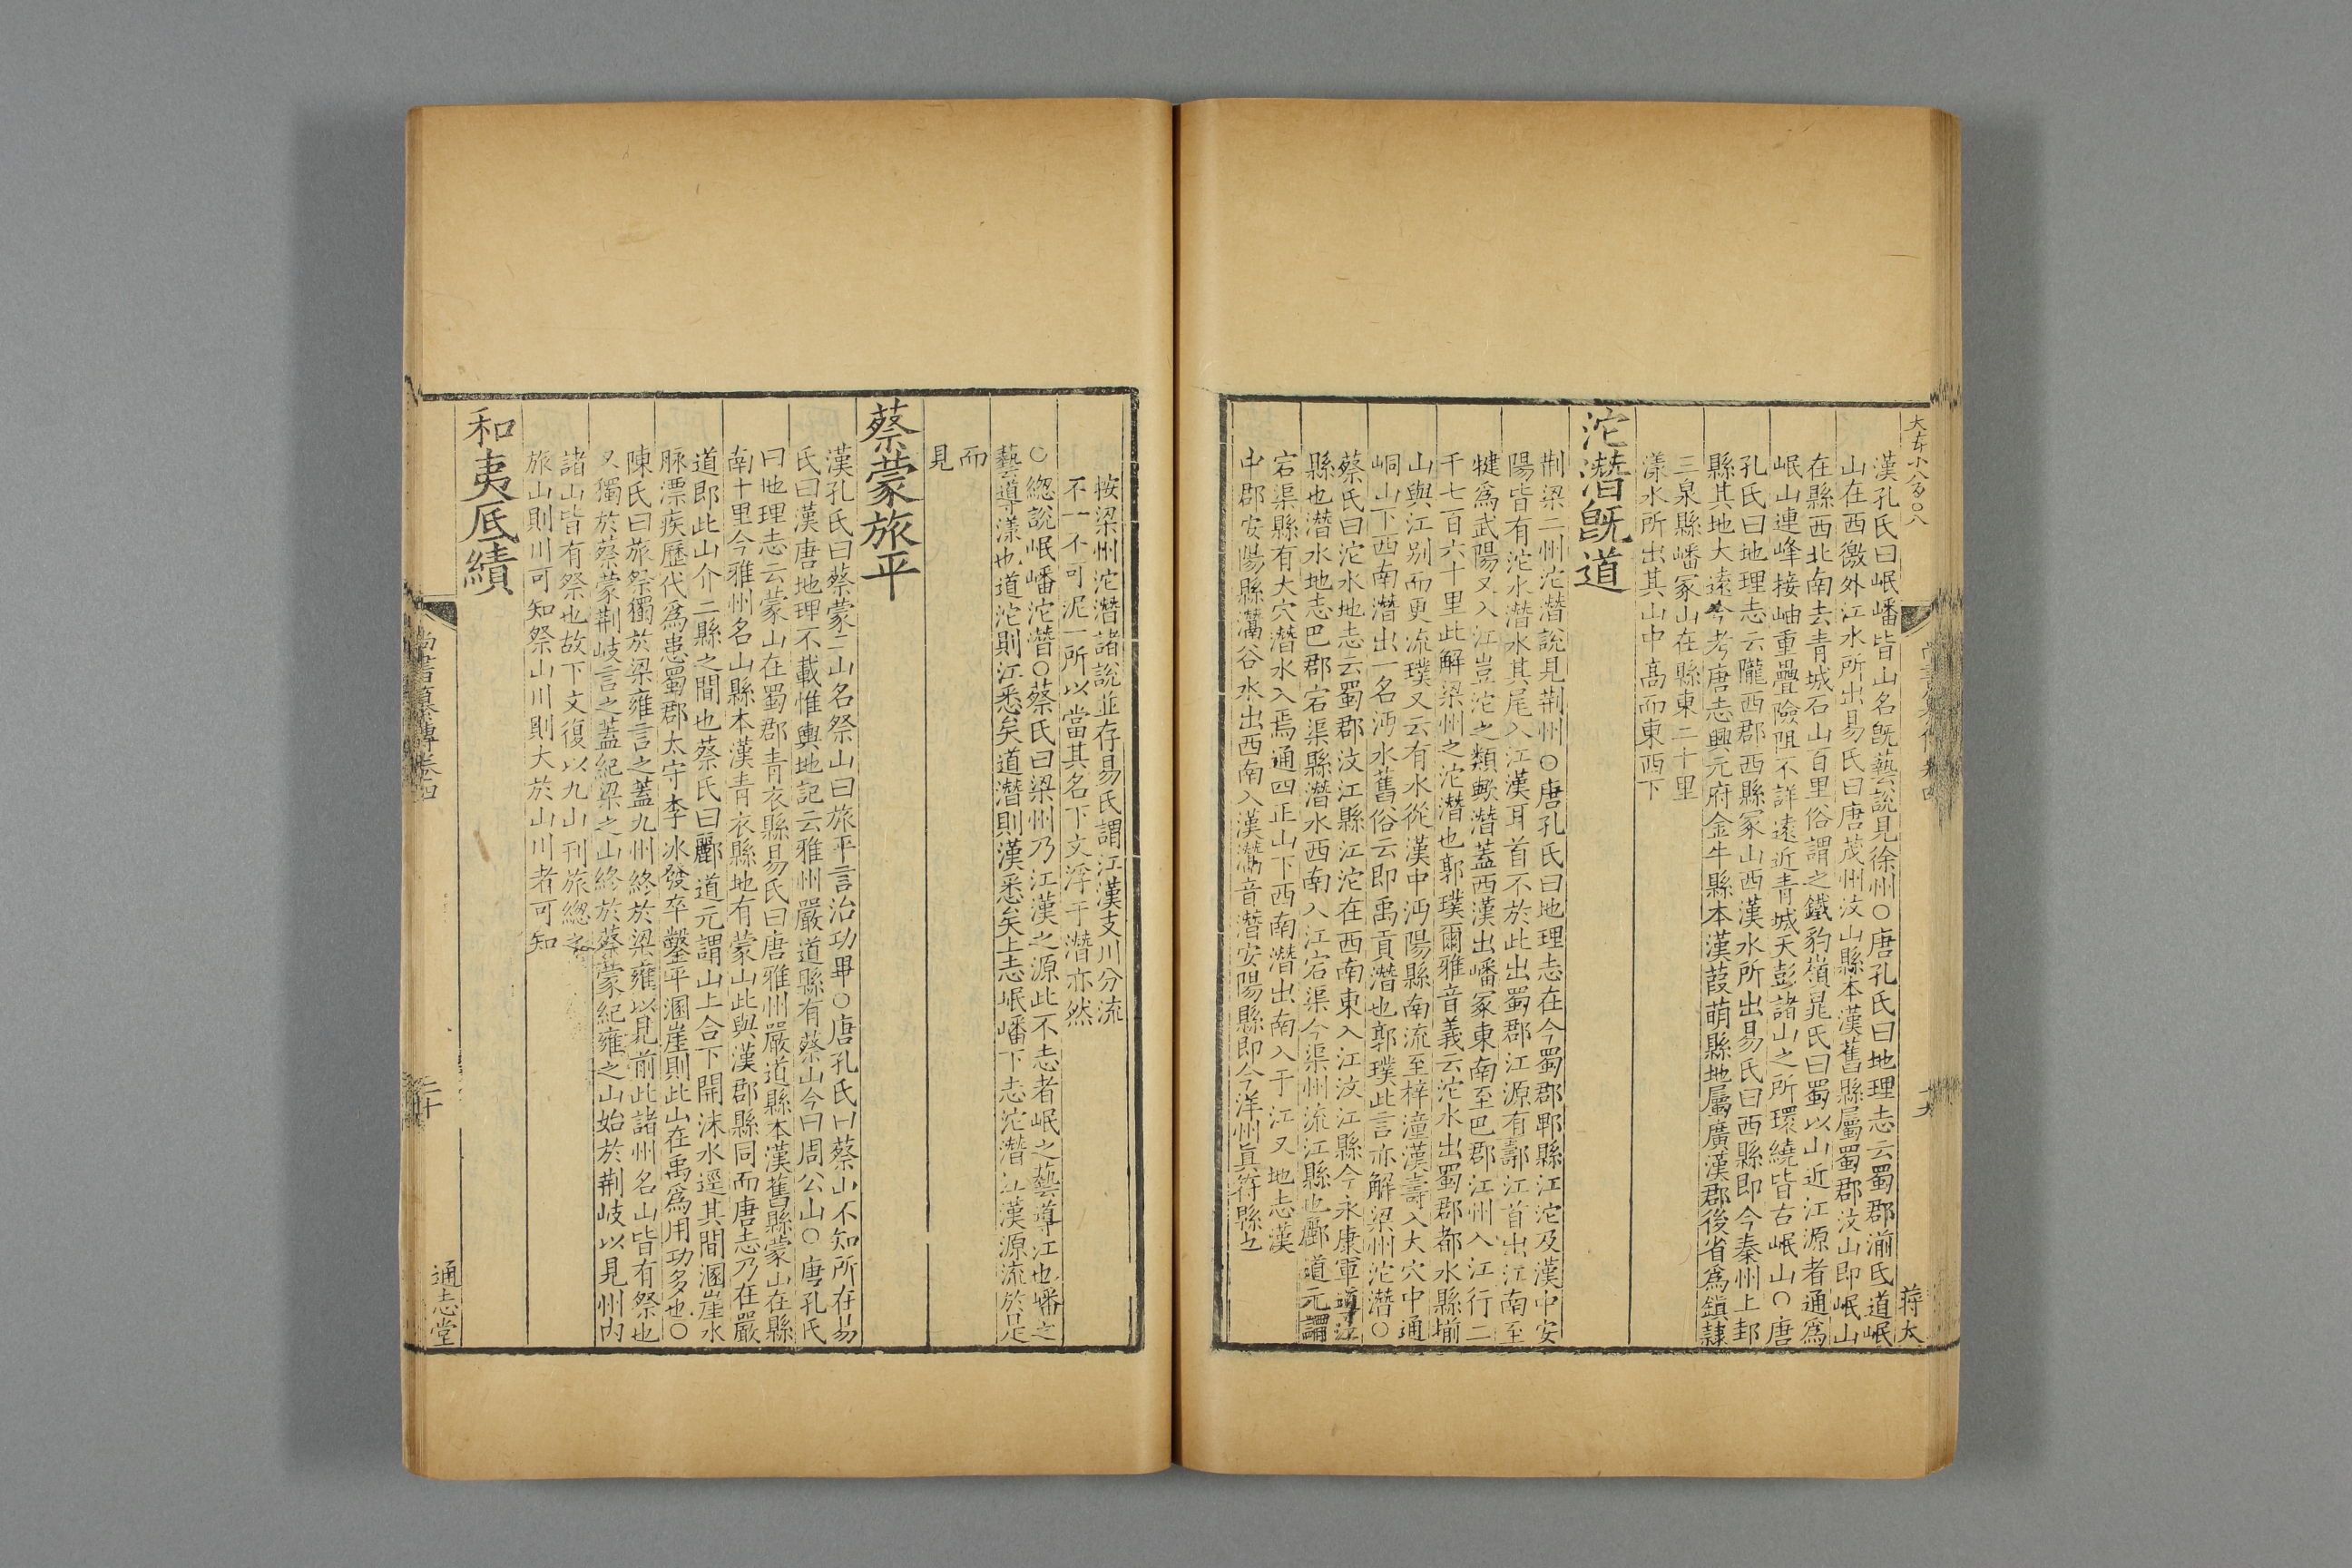 漢孔氏曰岷嶓皆山名旣藝說見徐州○唐孔氏曰地理志云蜀郡湔氐道岷
山在西徼外江水所出易氏曰唐茂州汶山縣本漢舊縣屬蜀郡汶山即岷山
在縣西北南去青城石山百里俗謂之鐵豹嶺晁氏曰蜀以山近江源者通爲
岷山連峰接岫重疊險阻不詳遠近青城天彭諸山之所環繞皆古岷山○唐
孔氏曰地理志云隴西郡西縣冢山西漢水所出易氏曰西縣即今秦州上邽
縣其地大遠今考唐志興元府金牛縣本漢葭萌縣地屬廣漢郡後省爲鎭隷
三泉縣嶓冢山在縣東二十里
漾水所出其山中高而東西下
沱潛旣道
荆梁二州沱潛說見荆州○唐孔氏曰地理志在今蜀郡郫縣江沱及漢中安
陽皆有沱水潛水其尾入江漢耳首不於此出蜀郡江源有䣝江首出江南至
犍爲武陽又入江豈沱之類歟潛蓋西漢出嶓冢東南至巴郡江州入江行二
千七百六十里此解梁州之沱潛也郭璞爾雅音義云沱水出蜀郡都水縣揃
山與江别而更流璞又云有水從漢中沔陽縣南流至梓潼漢壽入大穴中通
峒山下西南潛出一名沔水舊俗云即禹貢潛也郭璞此言亦解梁州沱潛○
蔡氏曰沱水地志云蜀郡汶江縣江沱在西南東入江汶江縣今永康軍導江
縣也潛水地志巴郡宕渠縣潛水西南入江宕渠今渠州流江縣也酈道元謂
宕渠縣有大穴潛水入焉通四正山下西南潛出南入于江又地志漢
中郡安陽縣灊谷水出西南入漢灊音潛安陽縣即今洋州眞符縣也
大五十小八百○八
一九
蔣太
按梁州沱潛諸說並存易氏謂江漢支川分流
不一不可泥一所以當其名下文浮于潛亦然
○緫說岷嶓沱潛○蔡氏曰梁州乃江漢之源此不志者岷之藝導江也嶓之
藝導漾也道沱則江悉矣道潛則漢悉矣上志岷嶓下志沱潛江漢源流於是
而
見
蔡蒙旅平
漢孔氏曰蔡蒙二山名祭山曰旅平言治功畢○唐孔氏曰蔡山不知所在易
氏曰漢唐地理不載惟輿地記云雅州嚴道縣有蔡山今曰周公山○唐孔氏
曰地理志云蒙山在蜀郡青衣縣易氏曰唐雅州嚴道縣本漢舊縣蒙山在縣
南十里今雅州名山縣本漢青衣縣地有蒙山此與漢郡縣同而唐志乃在嚴
道即此山介二縣之間也蔡氏曰酈道元謂山上合下開沫水逕其間溷崖水
脉漂疾歷代爲患蜀郡太守李冰發卒鑿平溷崖則此山在禹爲用功多也○
陳氏曰旅祭獨於梁雍言之蓋九州終於梁雍以見前此諸州名山皆有祭也
又獨於蔡蒙荆岐言之蓋紀梁之山終於蔡蒙紀雍之山始於荆岐以見州内
諸山皆有祭也故下文復以九山刊旅緫之
旅山則川可知祭山川則大於山川者可知
和夷厎績
尚書纂傳卷四
二十
通志堂